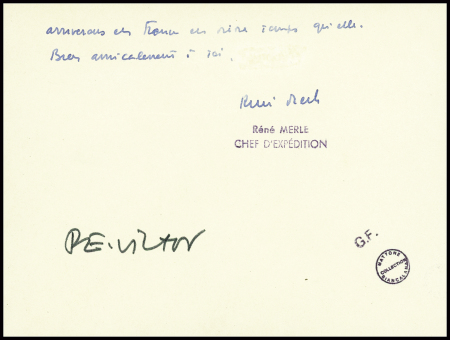 arriverons en France en même temps qu'elle.
Bien amicalement à toi.
René Merle
René MERLE
CHEF D'EXPÉDITION
P.E. VICTOR
G.F.
MATTONE
COLLECTION
BIANCALANA